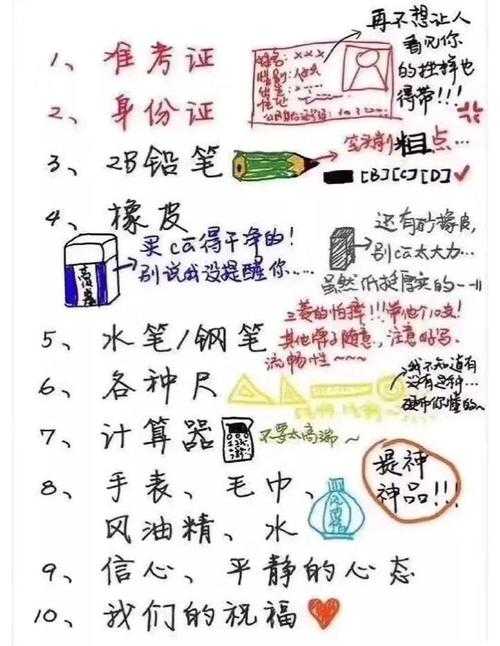 1、准考证
再不想让人
看见你
的独照也
得带!!!
姓名: xxx
性别:
2、身份证
3、2B铅笔
笔头削粗点…
[B][C][D]✓
4、橡皮
买ca得干净的!
别说我没提醒你…
还有砂橡皮,
别ca太大力…
虽然纸挺厚实的~~!!
5、水笔/钢笔
三菱的怕摔!!!带他个10支!
其他牌子随意,注意好写.
流畅性~~~~
6、各种尺
我不知道有
没有这种…
硬币你懂的~
7、计算器
不要太高端~
8、手表、毛巾、
风油精、水
风油精
提神
神品!!!
9、信心、平静的心态
10、我们的祝福